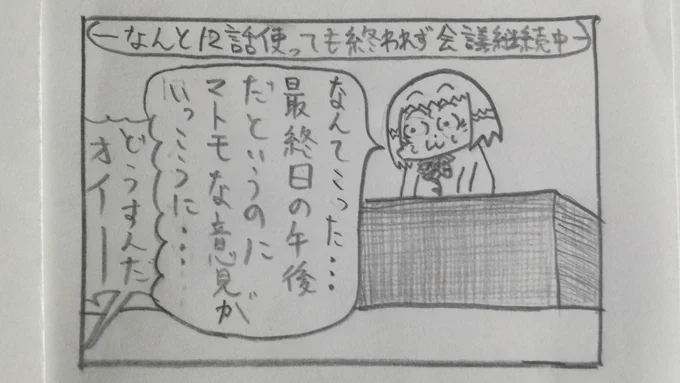 なんと12話使っても終われず会議継続中
なんてこった・・・
最終日の午後
だというのに
マトモな意見が
いっこうに・・・
どうすんだ
オイーーッ